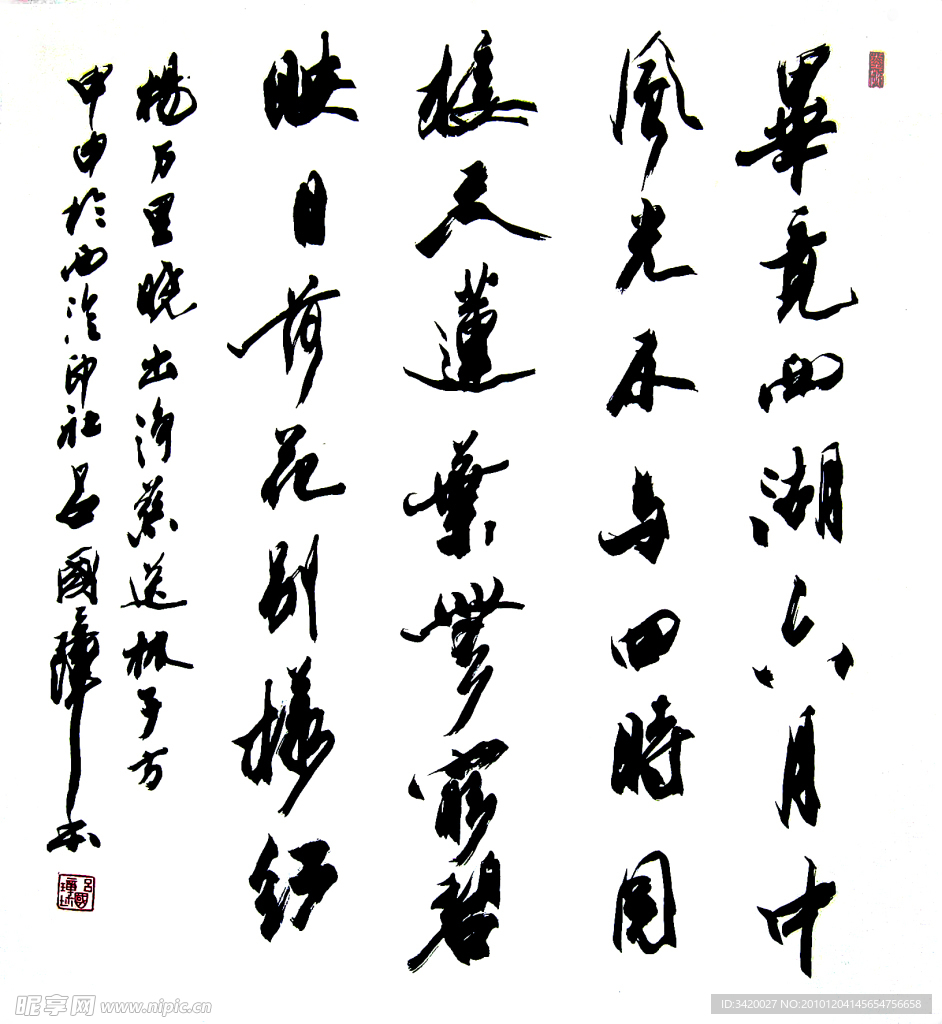 畢竟西湖六月中
風光不与四時同
接天蓮葉無窮碧
映日荷花別樣紅
楊万里曉出淨慈送林子方
甲申於西泠印社呂國璋书
呂國璋印
昵享网 www.nipic.cn
ID:3420027 NO:20101204145654756658